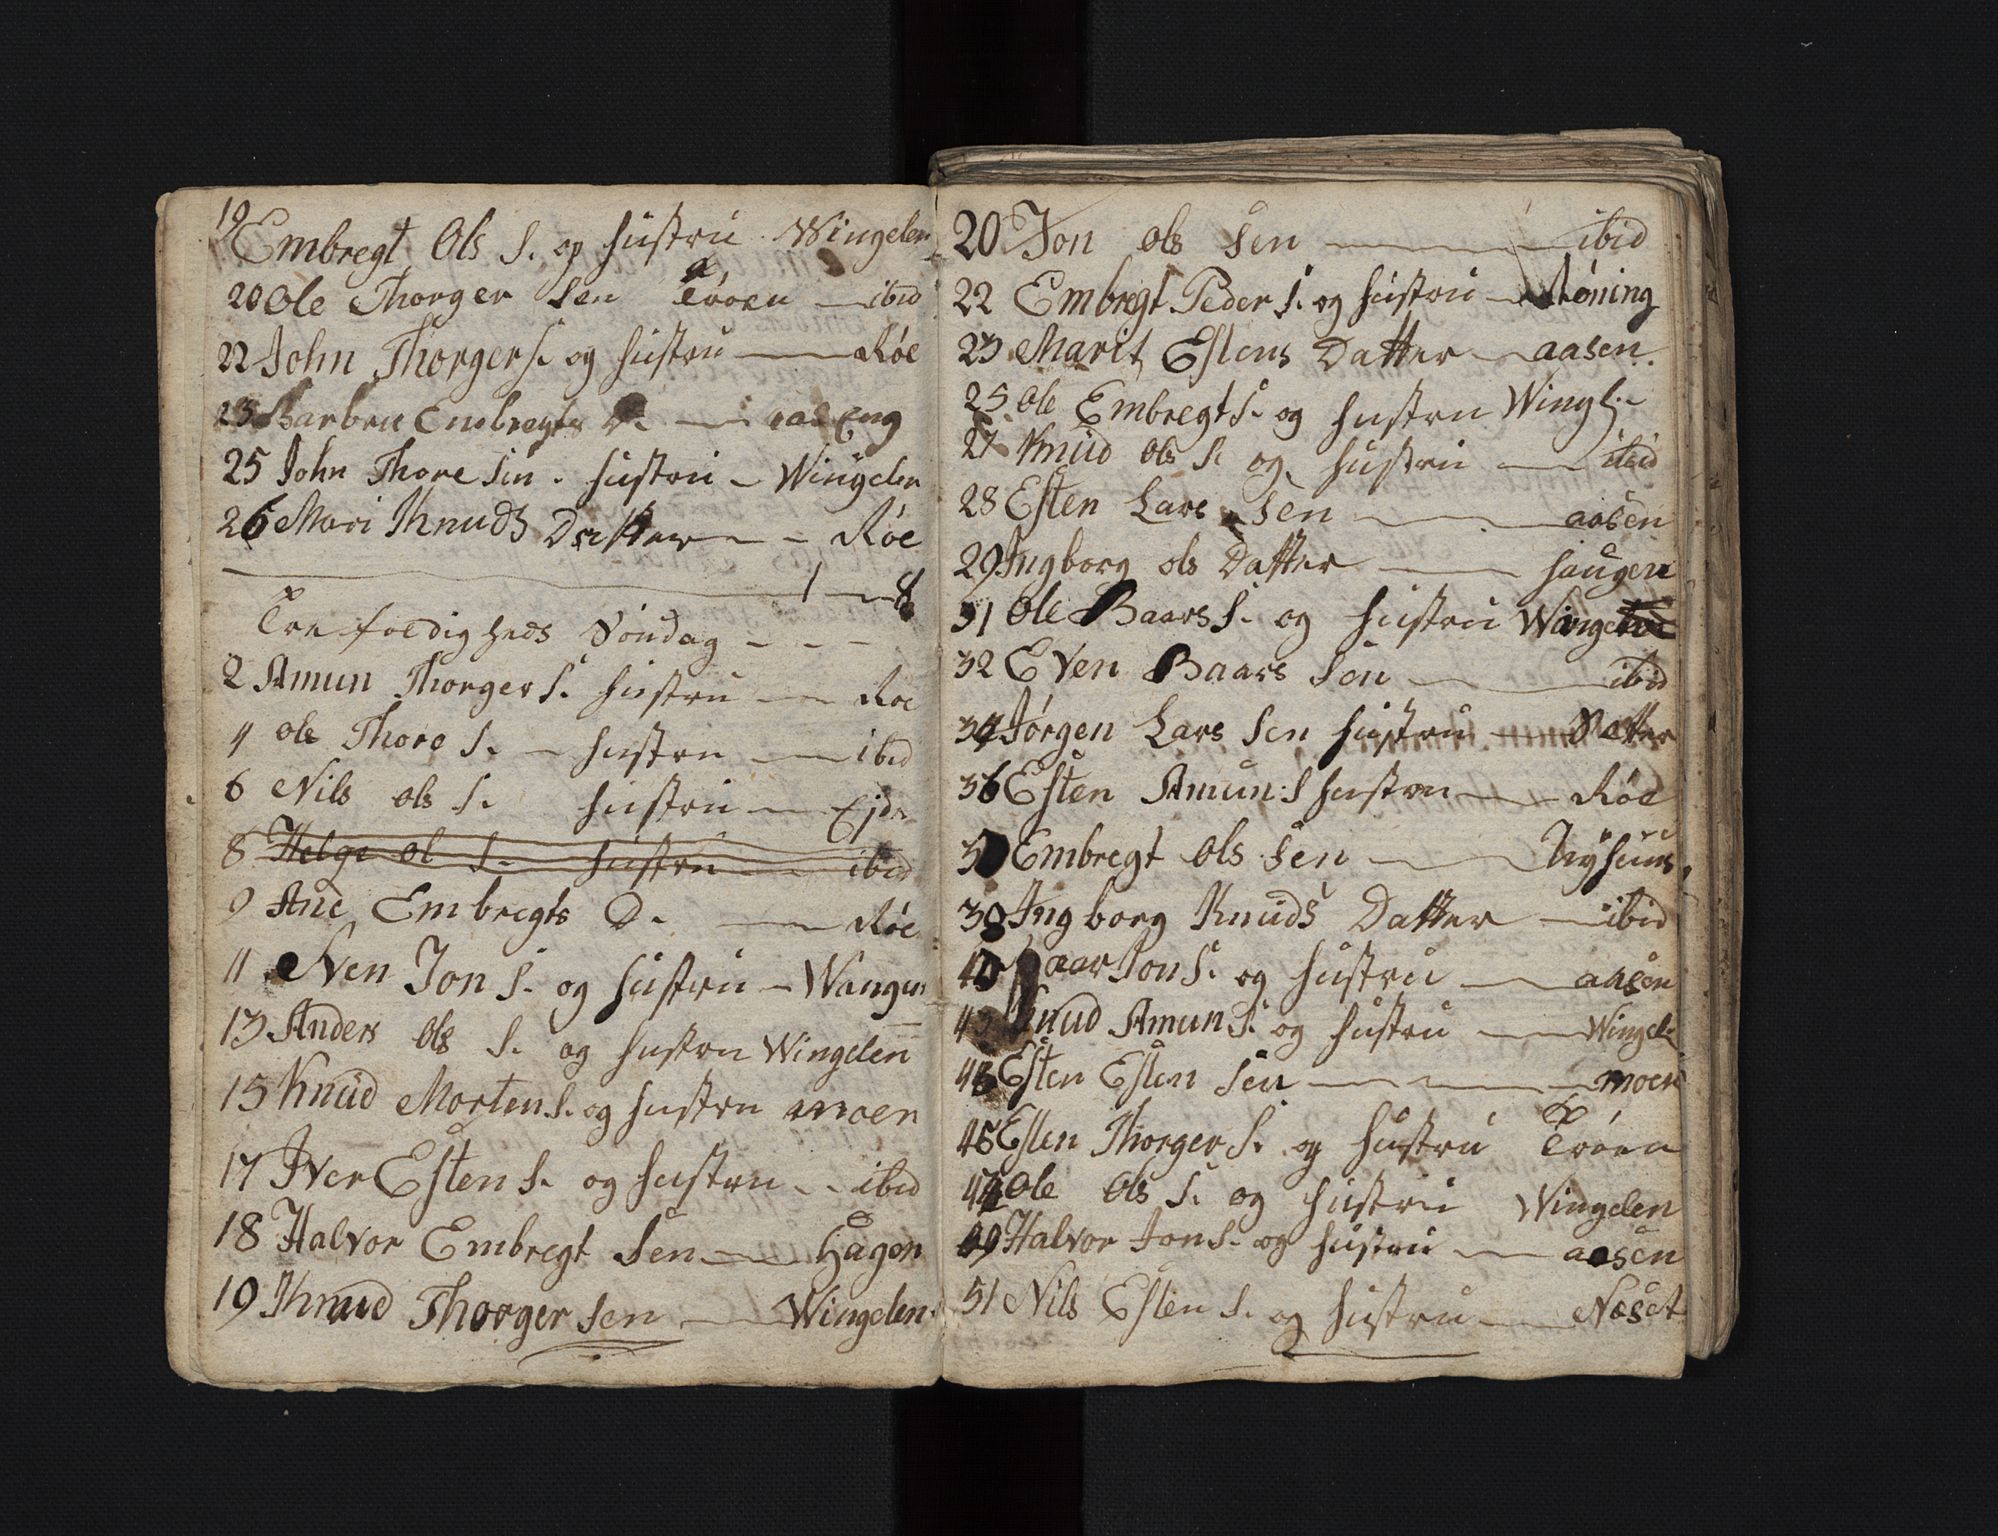 19 Embregt Ols S. og hustru Wingelen
20 Ole Thorger Sen Trøen — ibid
22 John Thorger S. og hustru — Røe
23 Barbru Embregts D. — aasEng
25 John Thore Sen . hustru – Wingelen
26 Mari Knuds Datter — Røe
1 — 8
Trefoldigheds Søndag - - -
2 Amun Thorger S. hustru — Røe
4 Ole Thore S. – hustru — ibid
6 Nils ols S. hustru — Ejde
8 Helge ol S. hustru — ibid
9 Ane Embregts D. — Røe
11 Even Jon S. og hustru – Wangen
13 Anders ols S. og hustru Wingelen
15 Knud Morten S. og hustru moen
17 Iver Esten S. og hustru - - ibid
18 Halvor Embregt Sen — Hagen
19 Knud Thorger Sen — Wingelen
20 Jon ols Sen — ibid
22 Embregt Peder S. og hustru – Røning
23 Marit Estens Datter — aasen
25 Ole Embregt S. og hustru Wingl.
27 Knud ols S. og hustru — ibid
28 Esten Lars Sen — aasen
29 Ingborg ols Datter — haugen
31 Ole Baars S. og hustru
32 Even Baars Sen — ibid
34 Jørgen Lars Sen hustru – Sætter
36 Esten Amun: S hustru — Røe
Embregt Ols Sen — Nyhuus
38 Ingborg Knuds Datter — ibid
Baar Jon S. og hustru — aasen
43 Knud Amun S. og hustru — Wingel:
Esten Esten Sen — moen
Esten Thorger S. og hustru Trøen
Ole Ols S. og hustru Wingelen
49 Halvor Jon S. og hustru — aasen
51 Nils Esten S. og hustru — Næset